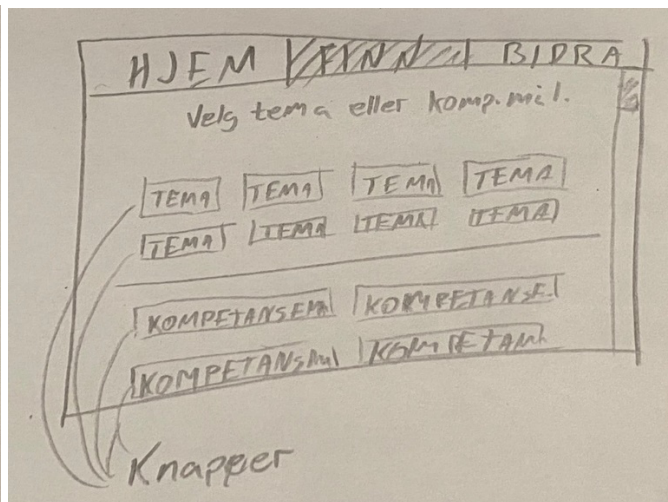 HJEM FINN BIDRA
Velg tema eller komp.mål.
TEMA TEMA TEMA TEMA
TEMA TEMA TEMA TEMA
KOMPETANSEM KOMPETANSE
KOMPETANSMul KOMPETAM
Knapper